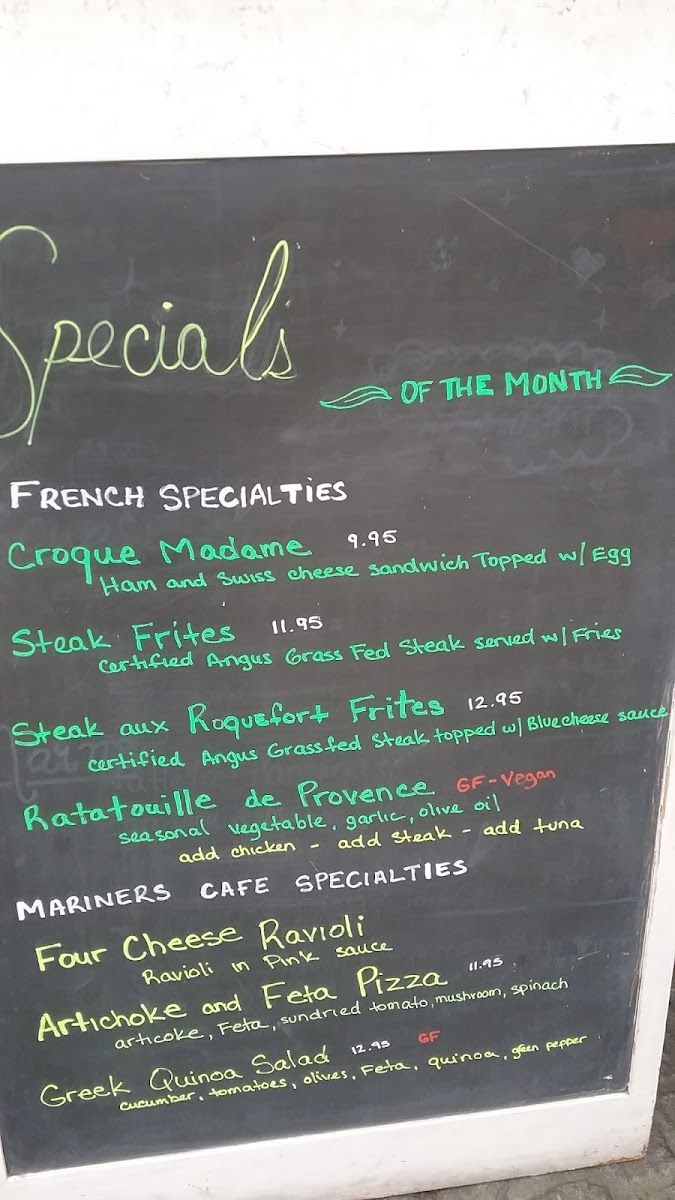 Specials
OF THE MONTH
FRENCH SPECIALTIES
Croque Madame 9.95
Ham and Swiss cheese sandwich Topped w/ Egg
Steak Frites 11.95
certified Angus Grass Fed Steak served w/ Fries
Steak aux Roquefort Frites 12.95
certified Angus Grassfed Steak topped w/ Bluecheese sauce
Ratatouille de Provence GF-Vegan
seasonal vegetable, garlic, olive oil
add chicken - add steak - add tuna
MARINERS CAFE SPECIALTIES
Four Cheese Ravioli
Ravioli in Pink sauce
Artichoke and Feta Pizza 11.95
articoke, Feta, sundried tomato, mushroom, spinach
Greek Quinoa Salad 12.95 GF
cucumber, tomatoes, olives, Feta, quinoa, green pepper